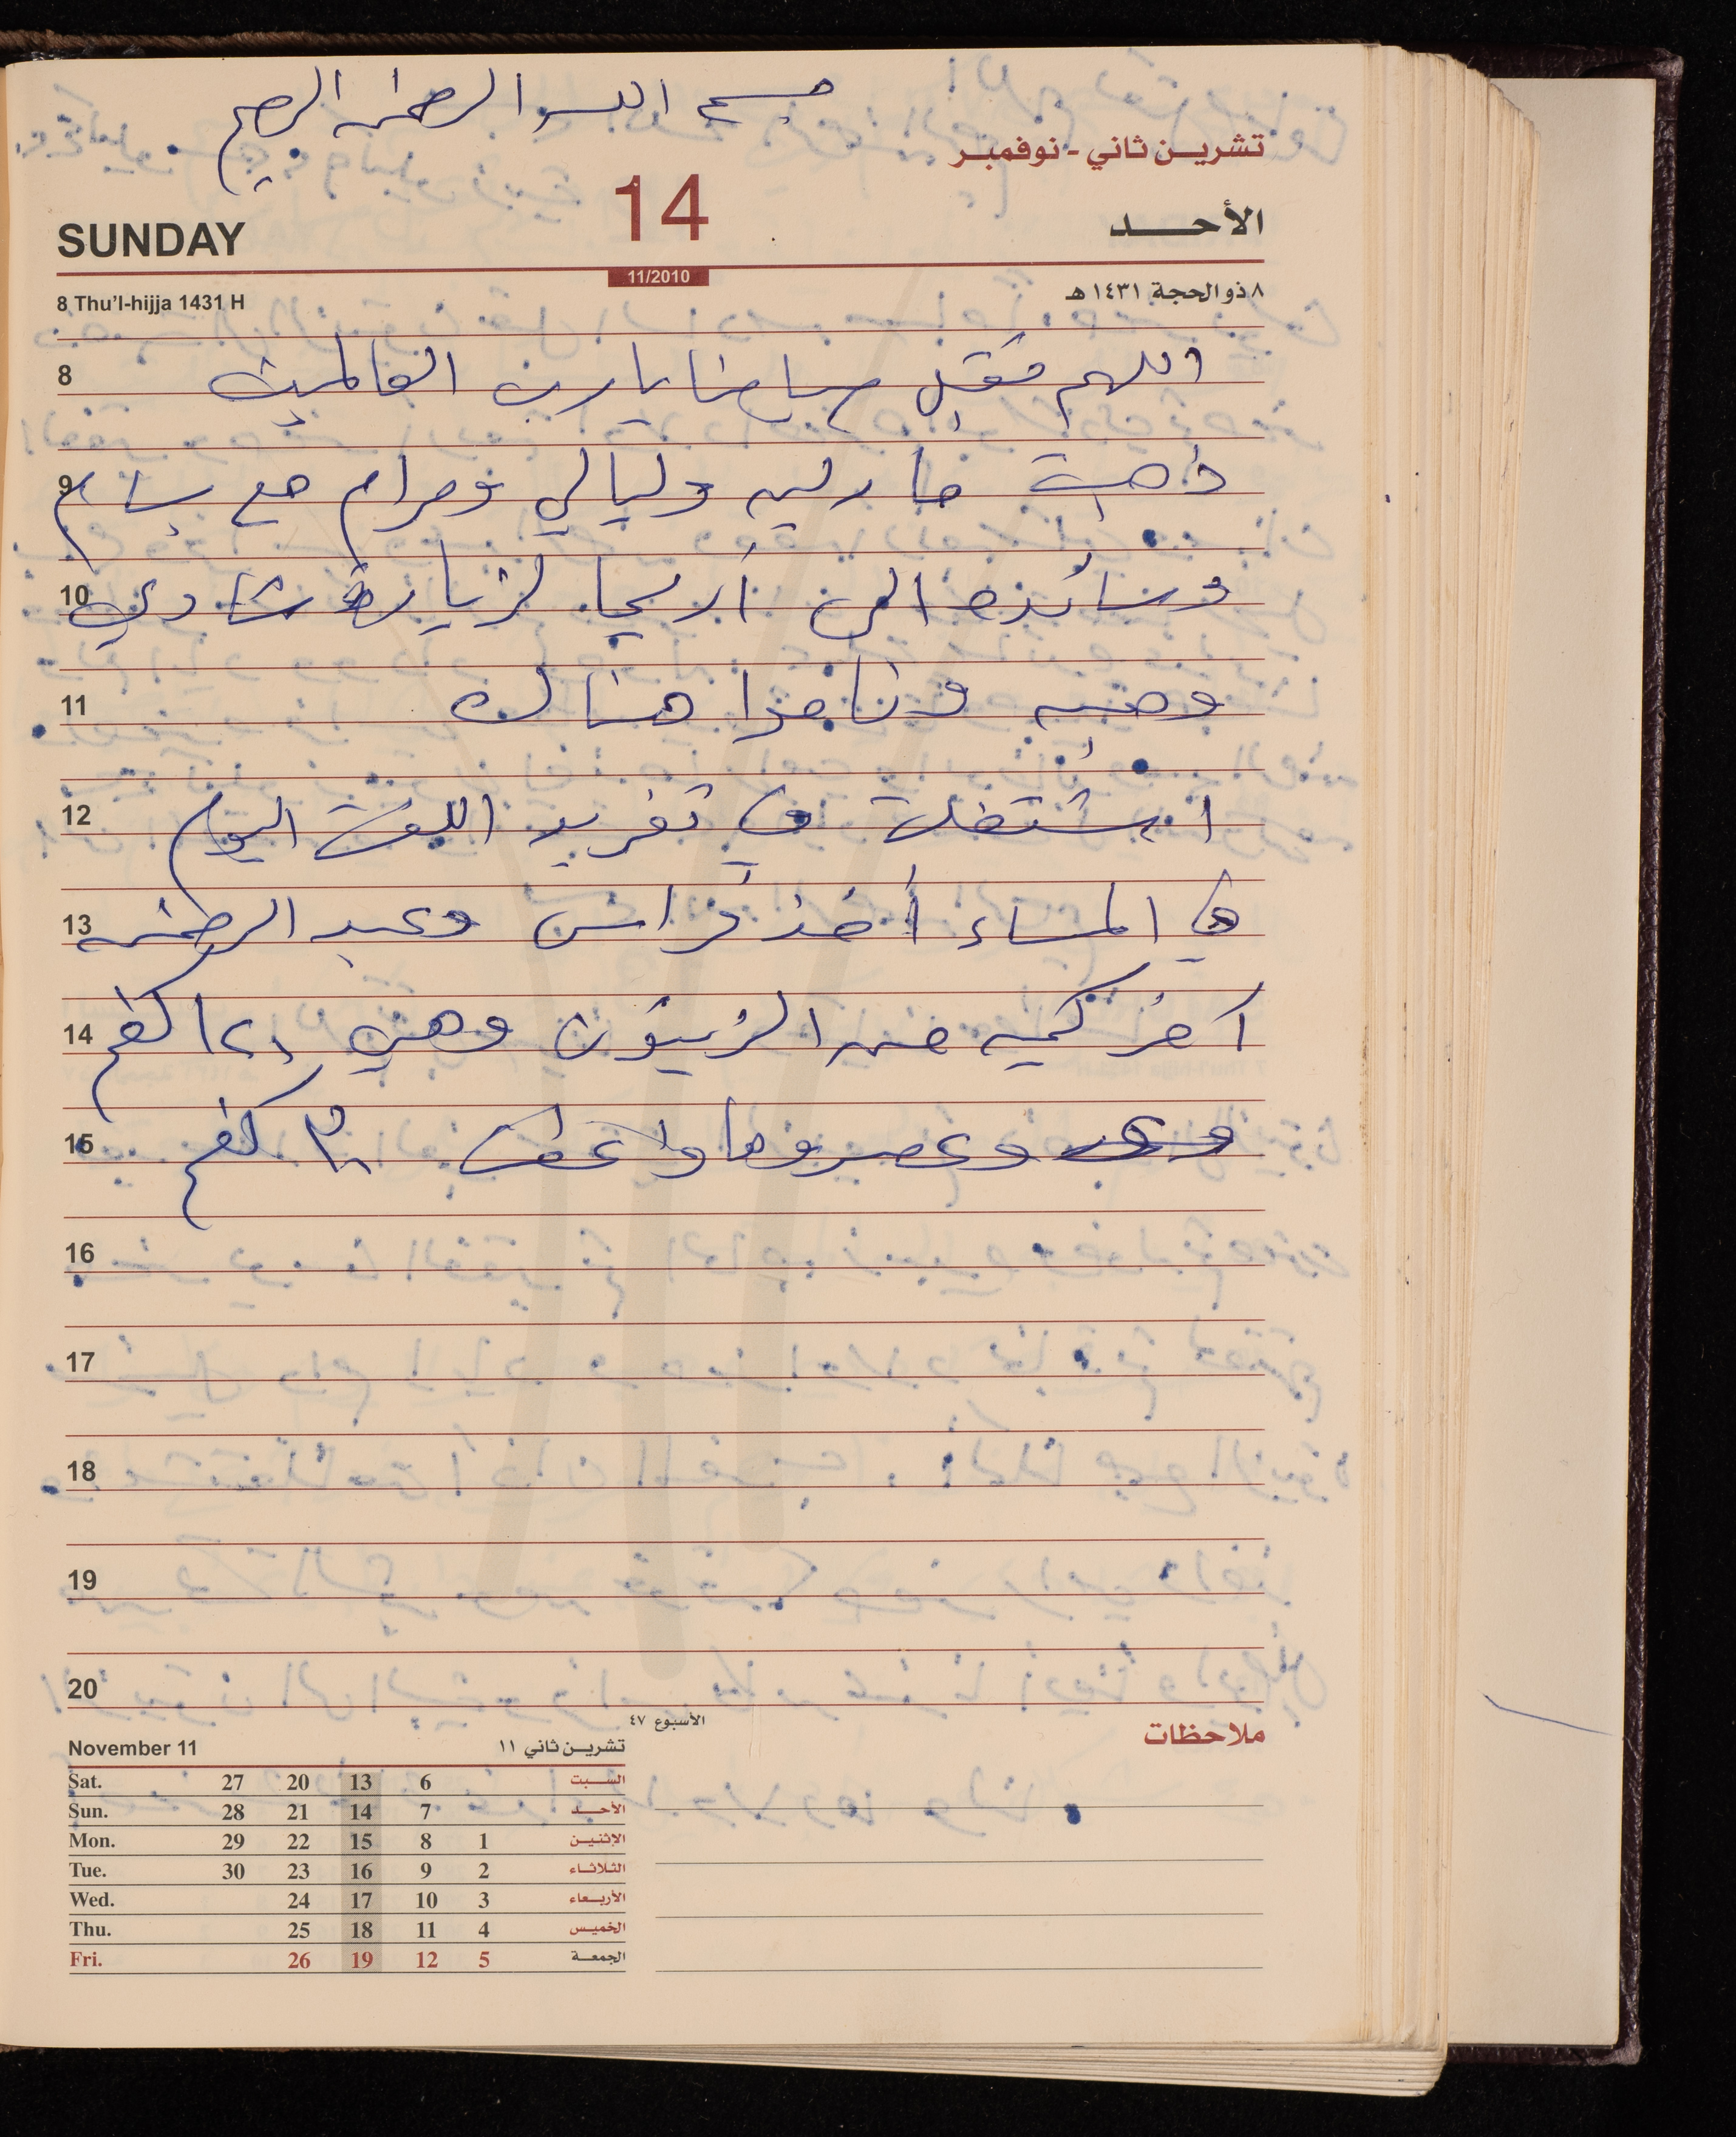 بسم الله الرحمن الرحيم
تشرين ثاني - نوفمبر
SUNDAY 14 الأحد
11/2010
8 Thu'l-hijja 1431 H ٨ ذو الحجة ١٤٣١ هـ
8 اللهم تقبل صيامنا يا رب العالمين
9 ذهبت مارلين وليالي ومرام مع بسام
10 وسائده الى أريحا لزيارة شادي
11 ومنيه وناموا هناك
12 اشتغلت في تفريد اللفت اليوم
13 في المساء أخذ فراس وعبد الرحمن
14 آخر كميه من الزيتون وهي ١٢١ كغم
15 وعصروها واعطت ٣٠ كغم
16
17
18
19
20
الأسبوع ٤٧
ملاحظات
November 11 تشرين ثاني ١١
Sat. 27 20 13 6 السبت
Sun. 28 21 14 7 الأحد
Mon. 29 22 15 8 1 الإثنين
Tue. 30 23 16 9 2 الثلاثاء
Wed. 24 17 10 3 الأربعاء
Thu. 25 18 11 4 الخميس
Fri. 26 19 12 5 الجمعة